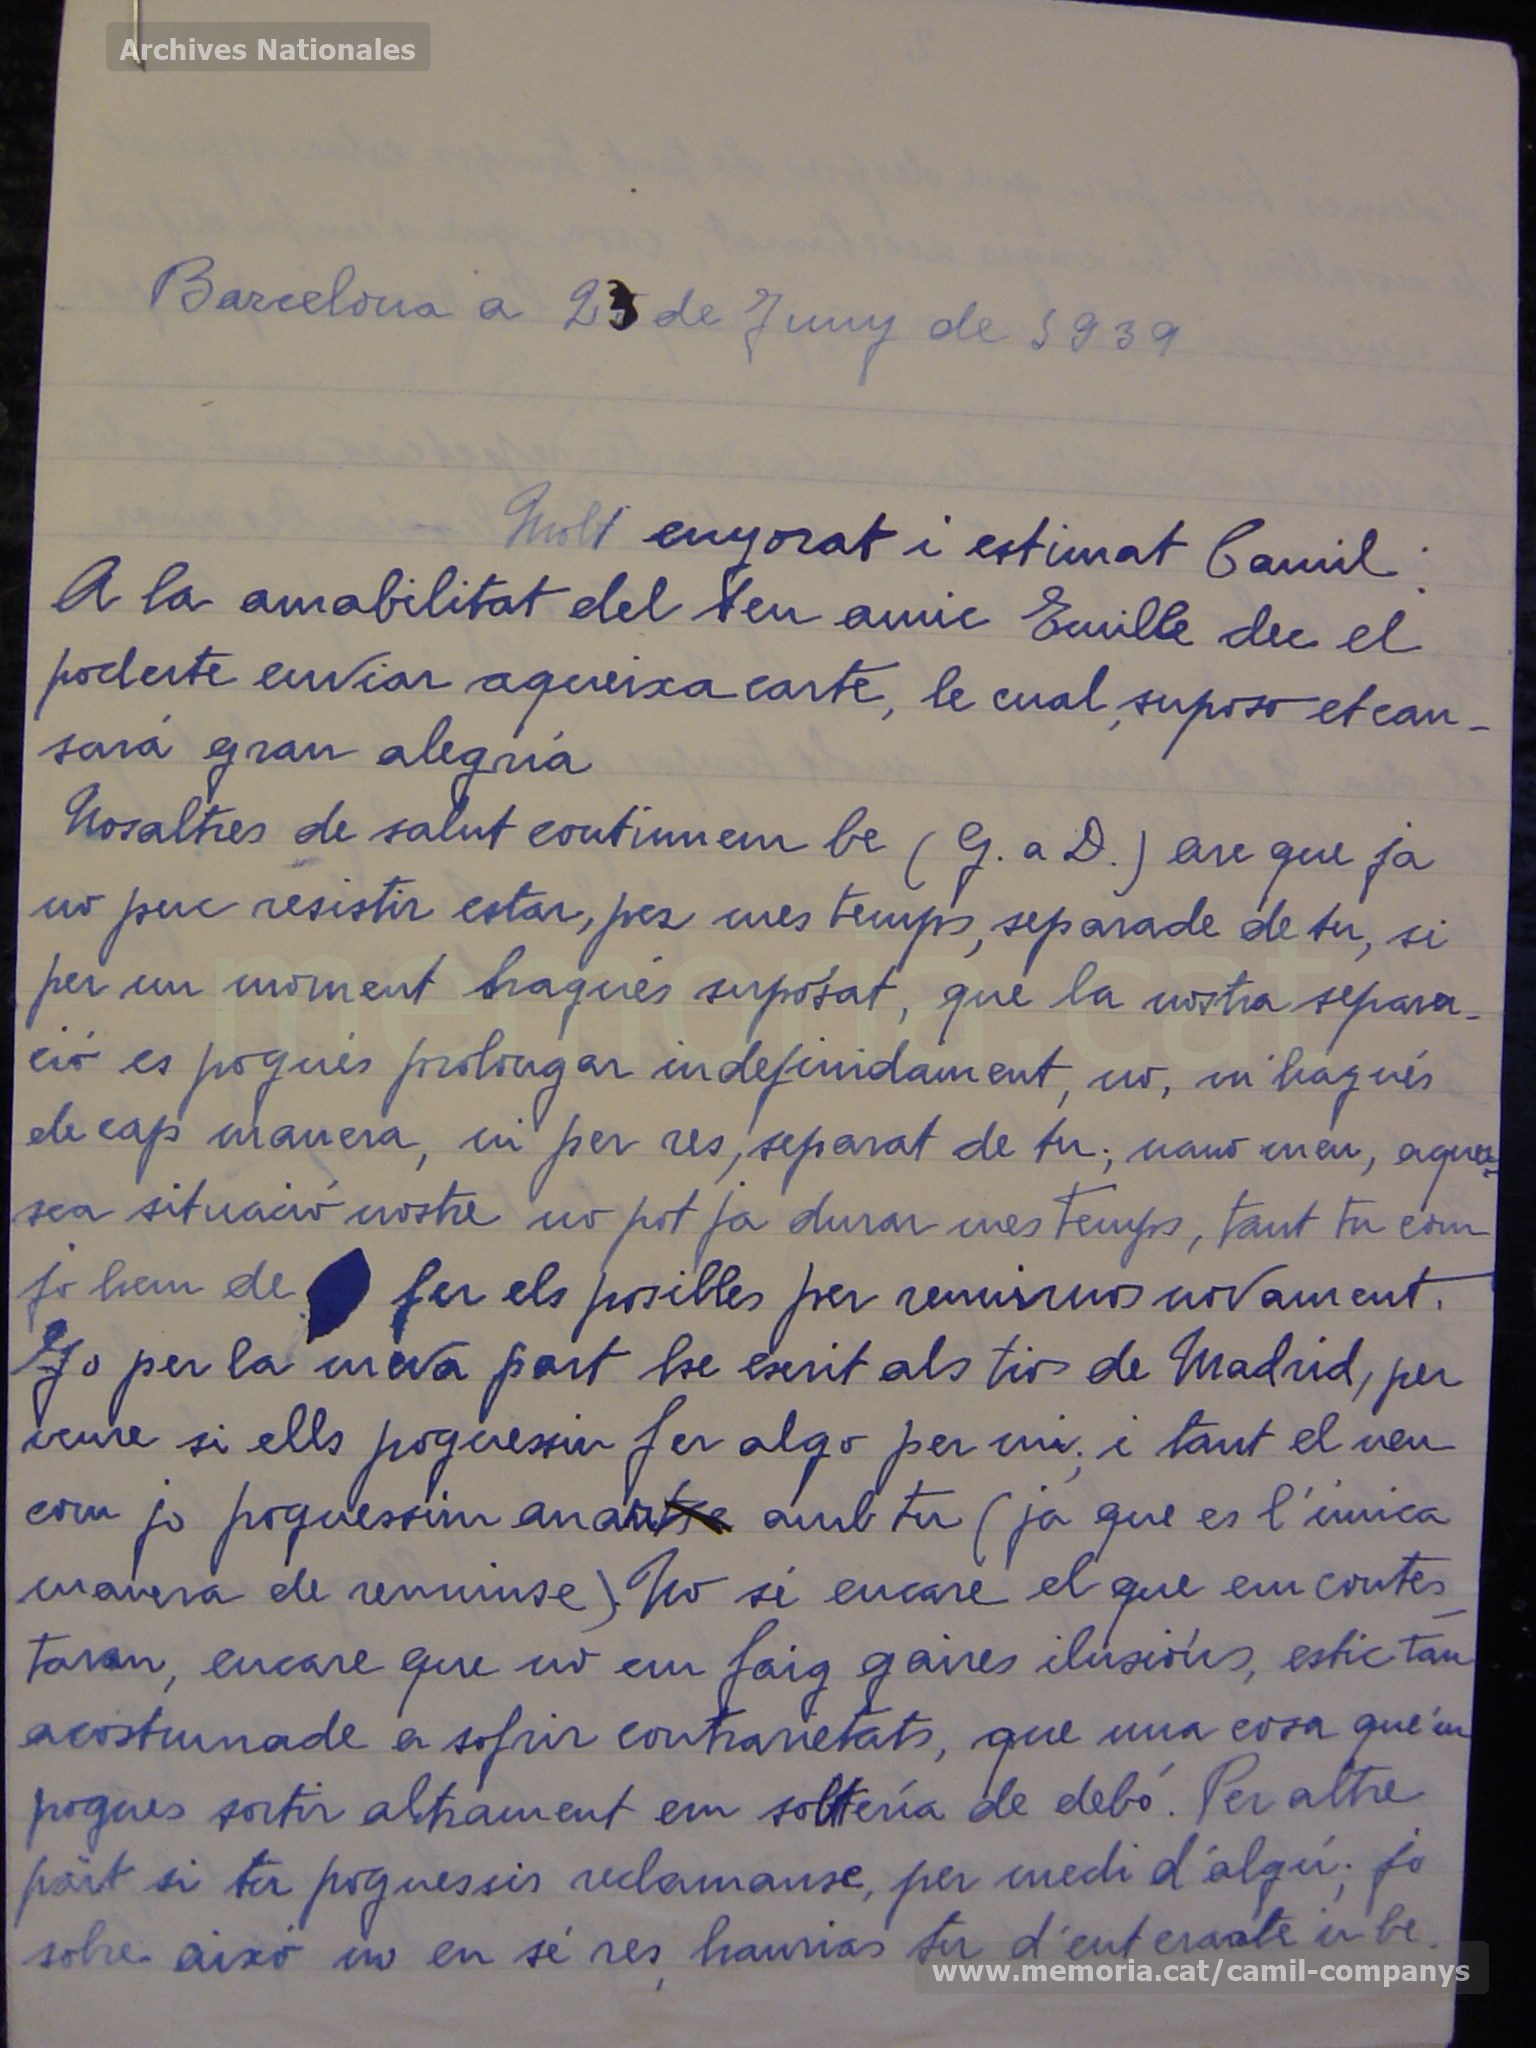 Archives Nationales
Barcelona a 23 de Juny de 1939
Molt enyorat i estimat Camil:
A la amabilitat del teu amic Emille dec el
poderte enviar aqueixa carte, le cual, suposo et cau-
sará gran alegría
Nosaltres de salut continuem be (G. a D.) are que ja
no puc resistir estar, per mes temps, separade de tu, si
per un moment hagués suposat, que la nostra separa-
ció es pogués prolongar indefinidament, no, m'hagués
de cap manera, ni per res, separat de tu; nano meu, aquei-
xa situació nostre no pot ja durar mes temps, tant tu com
jo hem de fer els posilles per reunirnos novament.
Jo per la meva part he escrit als tios de Madrid, per
veure si ells poguessin fer algo per mi; i tant el nen
com jo poguessim anar amb tu (ja que es l'única
manera de reunirse). No sé encare el que em contes-
taran, encare que no em faig gaires ilusións, estic tan
acostumade a sofrir contrarietats, que una cosa que'm
pogues sortir altrament em soltería de debó. Per altre
part si tu poguessis reclamanse, per medi d'algú; jo
sobre aixó no en sé res, haurias tu d'enterarte'n be.
memoria.cat
www.memoria.cat/camil-companys